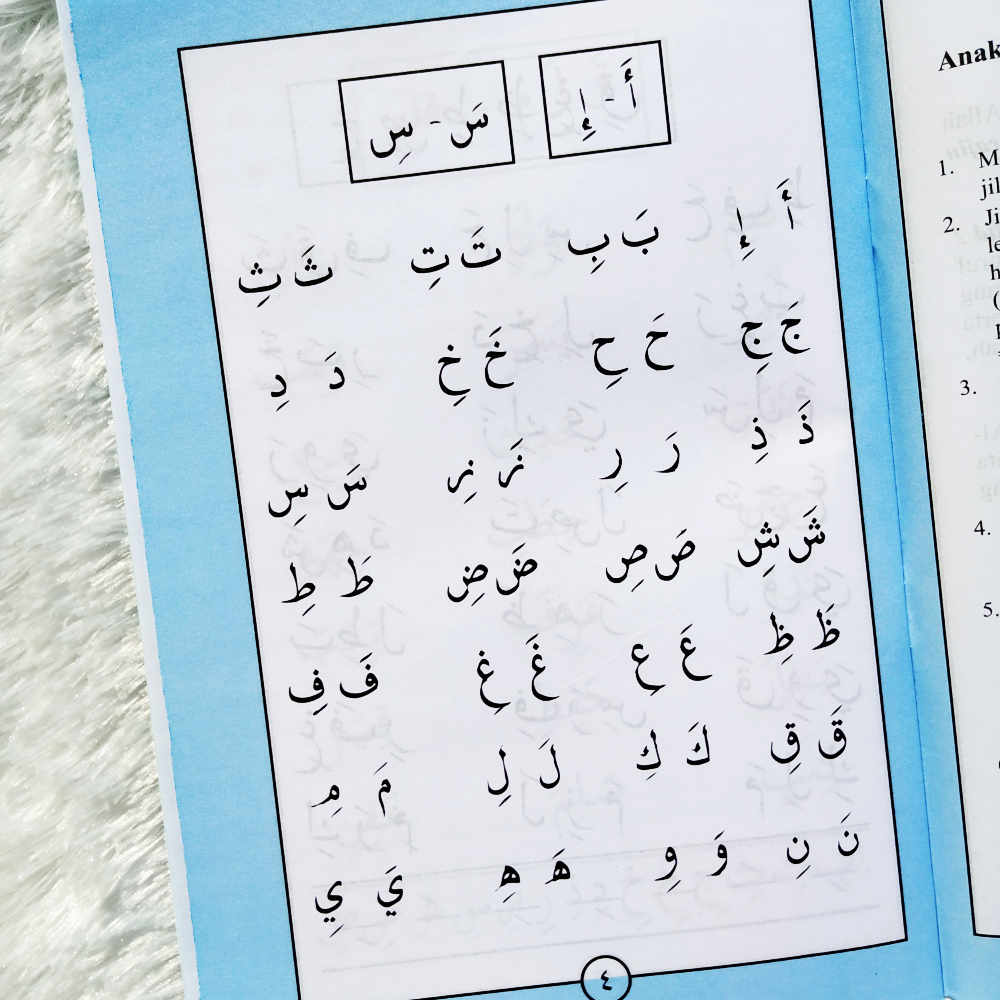 أَ - إِ
سَ - سِ
أَ إِ بَ بِ تَ تِ ثَ ثِ
جَ جِ حَ حِ خَ خِ دَ دِ
ذَ ذِ رَ رِ زَ زِ سَ سِ
شَ شِ صَ صِ ضَ ضِ طَ طِ
ظَ ظِ عَ عِ غَ غِ فَ فِ
قَ قِ كَ كِ لَ لِ مَ مِ
نَ نِ وَ وِ هَ هِ يَ يِ
٤
Anak
1.
2.
3.
4.
5.